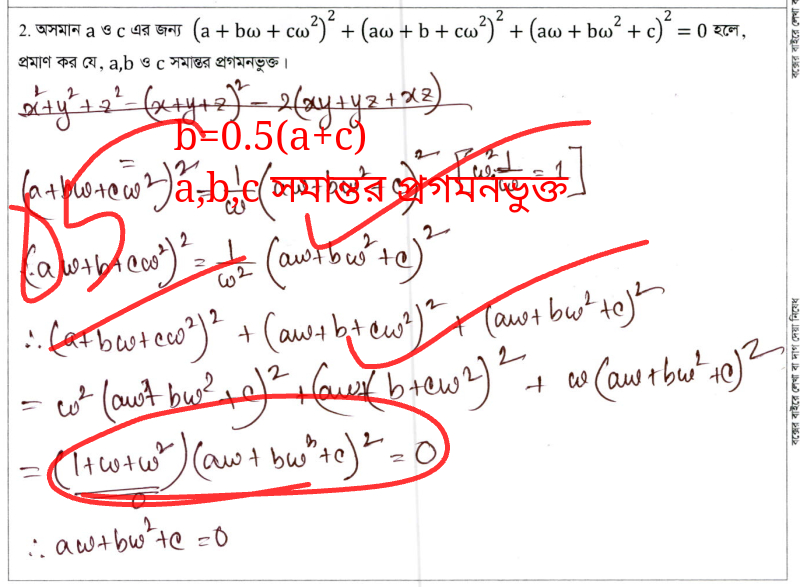 2. অসমান a ও c এর জন্য (a + bω + cω²)² + (aω + b + cω²)² + (aω + bω² + c)² = 0 হলে,
প্রমাণ কর যে, a,b ও c সমান্তর প্রগমনভুক্ত।
x²+y²+z² - (x+y+z)² - 2(xy+yz+xz)
b=0.5(a+c)
(a+bω+cω²)² = 1/ω (aω+bω²+c)²
a,b,c সমান্তর প্রগমনভুক্ত
(aω+b+cω²)² = 1/ω² (aω+bω²+c)²
∴ (a+bω+cω²)² + (aω+b+cω²)² + (aω+bω²+c)²
= ω² (aω+bω²+c)² + (aω+(b+cω2)² + ω(aω+bω²+c)²
= (1+ω+ω²)(aω+bω²+c)² = 0
0
∴ aω+bω²+c = 0
বক্সের বাইরে লেখা বা দাগ দেয়া নিষেধ